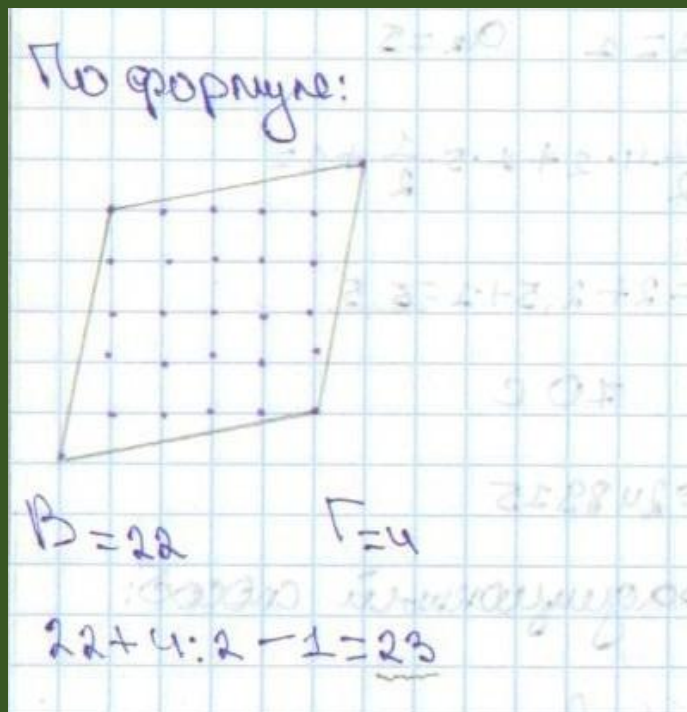 По формуле:
В = 22 Г = 4
22 + 4 : 2 – 1 = 23